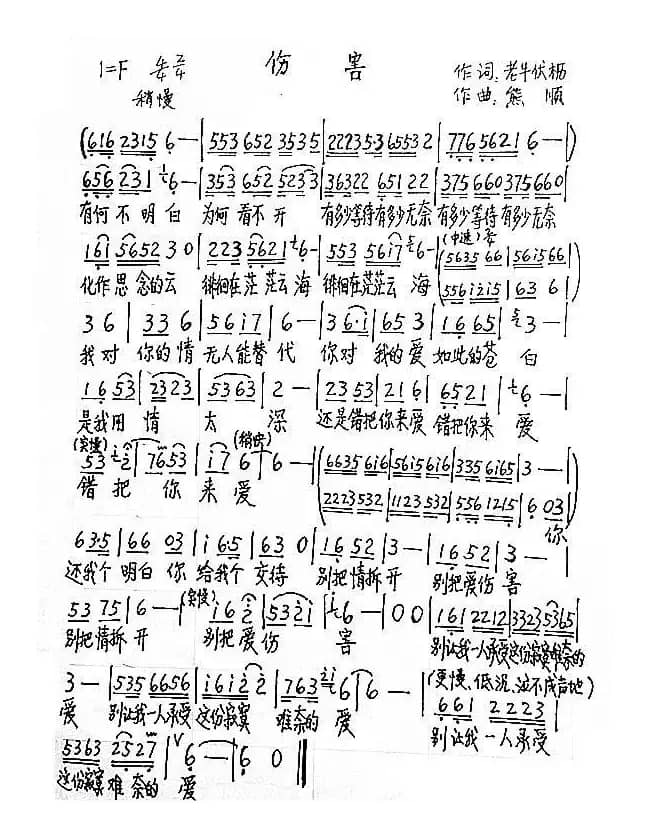 伤 害
1=F 4/4 2/4
作词:老牛伏枥
稍慢
作曲:熊 顺
(616 2315 6 — | 553 652 3535 | 22235·3 65532 | 7765621 6 — |)
656 231 6 — | 353 652 5233 | 36322 651 22 | 375660 375660 |
有何不明白 为何看不开 有多少等待有多少无奈 有多少等待有多少无奈
(中速)
161 5652 3 0 | 223 5621 6 — | 553 5617 6 — | (5635 66 | 561566 |
556 1215 | 63 6 )
化作思念的云 徘徊在茫茫云海 徘徊在茫茫云海
3 6 | 33 6 | 5617 | 6 — | 3 6·1 | 65 3 | 16 65 | 3 — |
我对 你的情 无人能替代 你对 我的爱 如此的苍白
16 53 | 2323 | 5363 | 2 — | 23 53 | 21 6 | 6521 | 6 — |
是我用情太深 还是错把你来爱 错把你来爱
(突慢) (稍快)
53 2 | 7653 | 17 6 | 6 — | (6635 616 | 5615 616 | 335 6165 | 3 — |
2223 532 | 1123 532 | 556 1215 | 6 03 )
错把你来爱 你
63·5 | 66 03 | 1 6·5 | 63 0 | 16 52 | 3 — | 16 52 | 3 — |
还我个明白 你 给我个交待 别把情拆开 别把爱伤害
(突慢)
53 75 | 6 — | 16 2 | 5321 | 6 — | 0 0 | 161 2212 | 3323 5365 |
别把情拆开 别把爱伤害 别让我一人承受这份寂寞难奈的
3 — | 535 6656 | 1612 2 | 763 6 | 6 — |
(更慢、低沉、泣不成声地)
661 2223 |
爱 别让我一人承受 这份寂寞 难奈的爱
别让我一人承受
5363 2527 | 6 — | 6 0 ‖
这份寂寞难奈的 爱